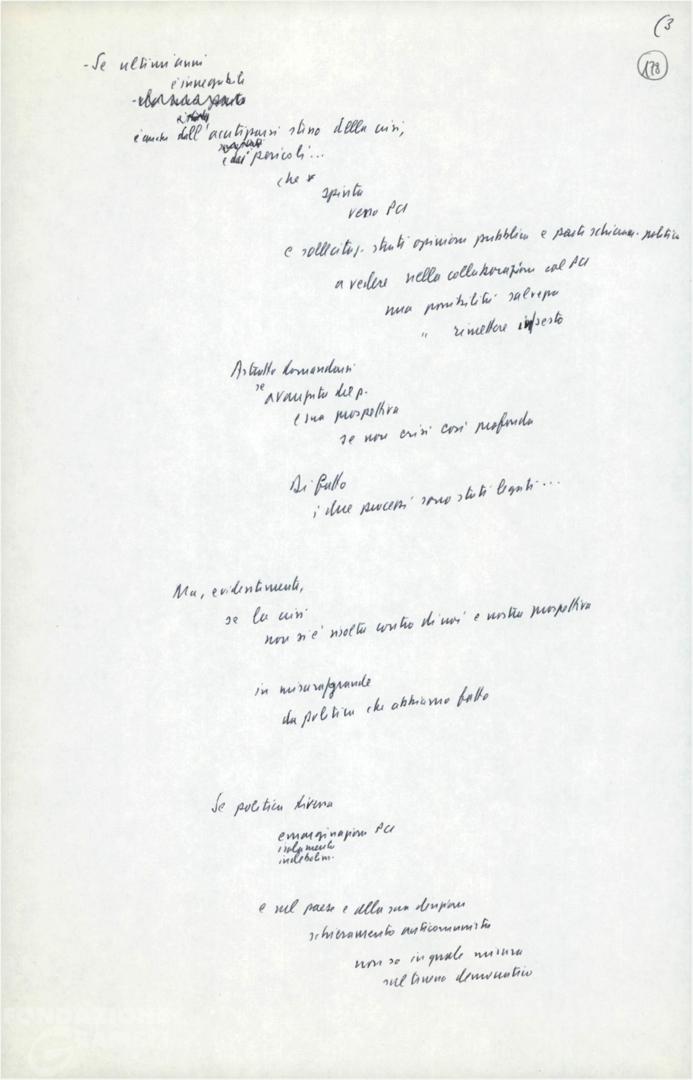 (3
178
- Se ultimi anni
è innegabile
è anche dall'acutizzarsi stesso della crisi,
e dai pericoli...
che
spinta
verso PCI
e sollecitaz. strati opinione pubblica e parti schieram. politico
a vedere nella collaborazione col PCI
una possibilità salvezza
" rimettere in sesto
Astratto domandarsi
se
avanzata del p.
e sua prospettiva
se non crisi così profonda
Di fatto
i due processi sono stati legati...
Ma, evidentemente,
se la crisi
non si è risolta contro di noi e nostra prospettiva
in misura grande
da politica che abbiamo fatto
Se politica diversa
emarginazione PCI
isolamento
indebolim.
e nel paese e alla sua direzione
schieramento anticomunista
non so in quale misura
sul terreno democratico